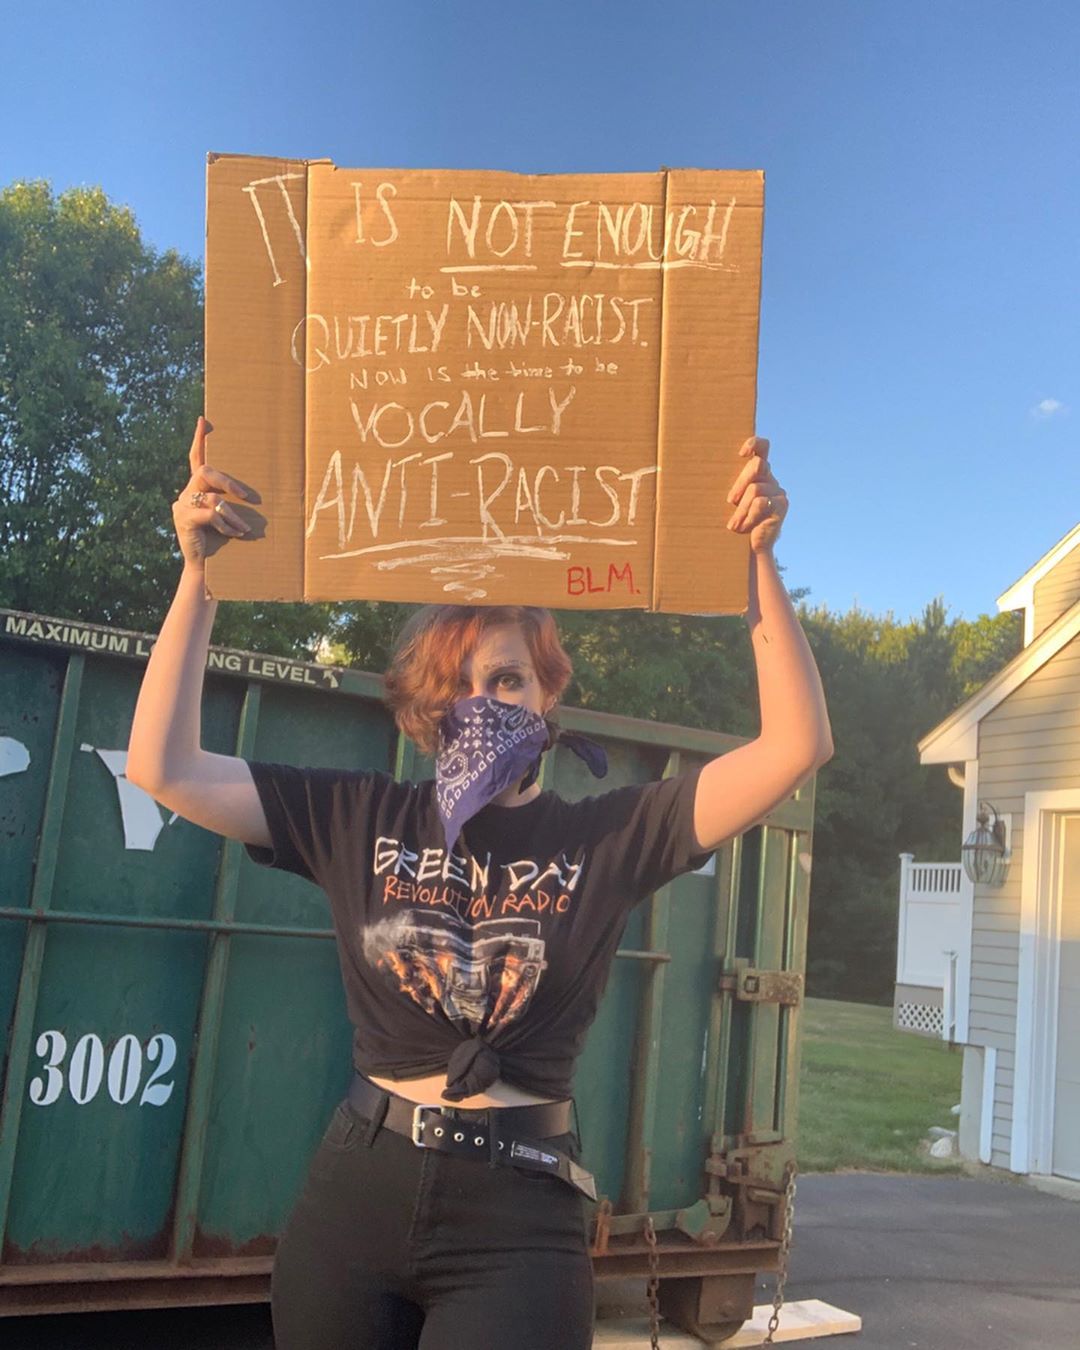 IT IS NOT ENOUGH
to be
QUIETLY NON-RACIST.
NOW IS the time to be
VOCALLY
ANTI-RACIST
BLM.
MAXIMUM L NG LEVEL
GREEN DAY
REVOLUTION RADIO
3002